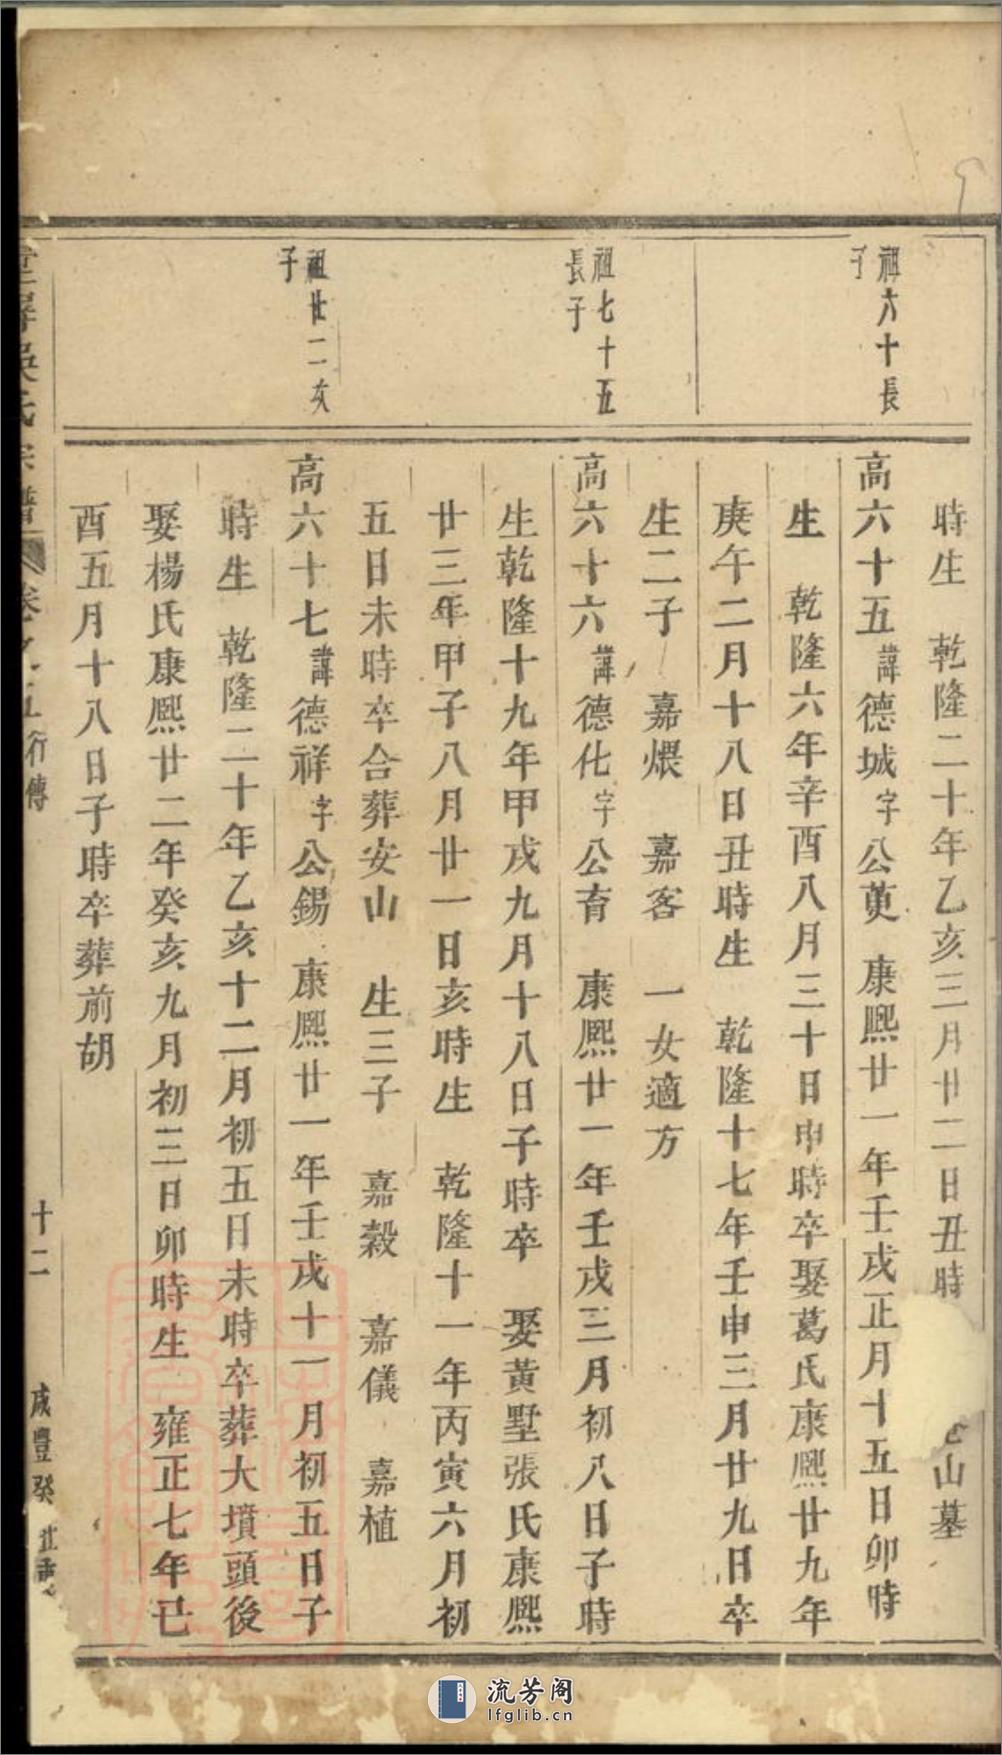 祖六十長
子
祖七十五
長子
祖廿二次
子
時生　乾隆二十年乙亥三月廿二日丑時　山墓
高六十五諱德城字公　康熙廿一年壬戌正月十五日卯時
生　乾隆六年辛酉八月三十日申時卒娶葛氏康熙廿九年
庚午二月十八日丑時生　乾隆十七年壬申三月廿九日卒
生二子　嘉煨　嘉客　一女適方
高六十六諱德化字公育　康熙廿一年壬戌三月初八日子時
生乾隆十九年甲戌九月十八日子時卒　娶黃墅張氏康熙
廿三年甲子八月廿一日亥時生　乾隆十一年丙寅六月初
五日未時卒合葬安山　生三子　嘉穀　嘉儀　嘉植
高六十七諱德祥字公錫　康熙廿一年壬戌十一月初五日子
時生　乾隆二十年乙亥十二月初五日未時卒葬大墳頭後
娶楊氏康熙廿二年癸亥九月初三日卯時生　雍正七年已
酉五月十八日子時卒葬前胡
吳氏宗譜　卷之五行傳　十二　咸豐癸丑重
流芳阁
lfglib.cn